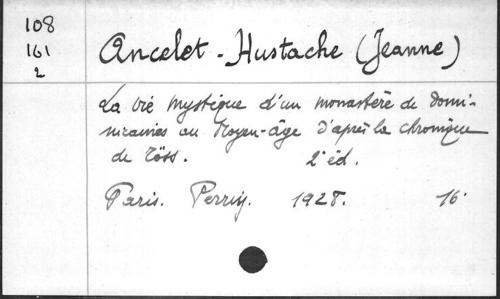 108
161
2
Ancelet-Hustache (Jeanne)
La vie mystique d'un monastère de domi-
nicaines au Moyen-âge d'après la chronique
de Töss. 2e éd.
Paris. Perrin. 1928. 16°